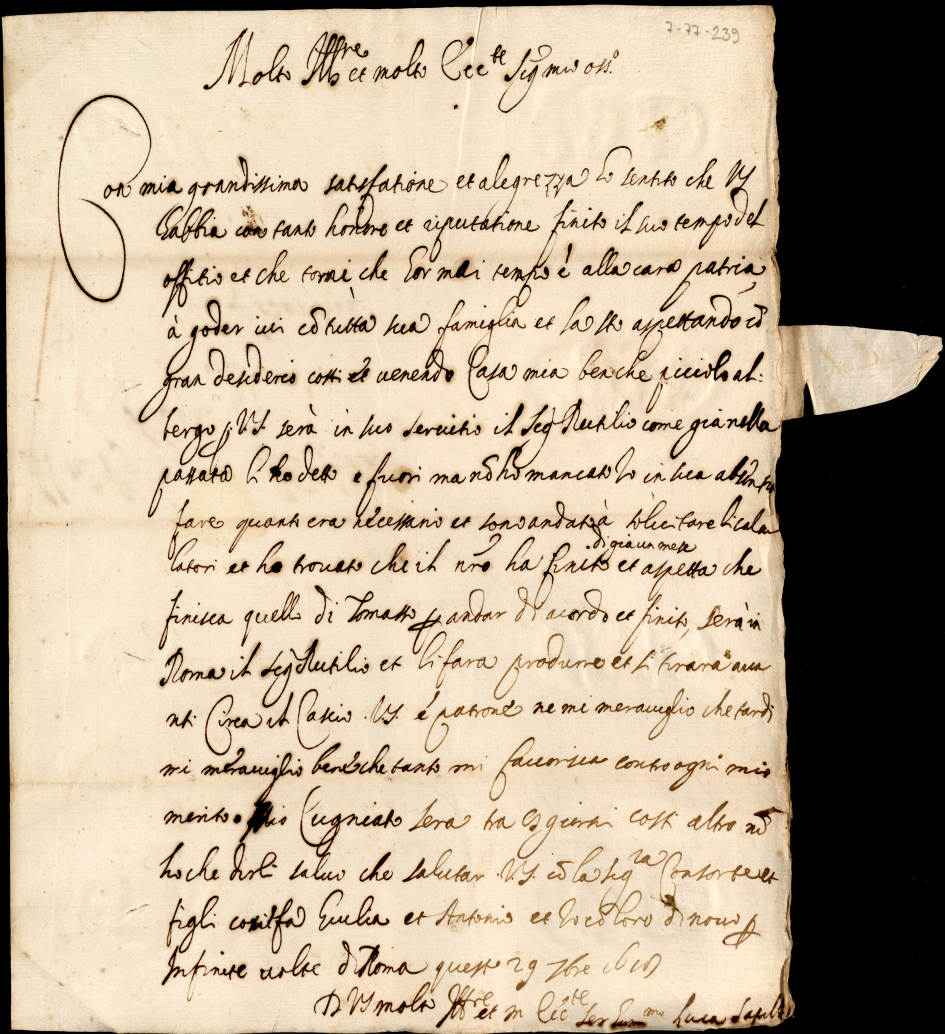 7-77-239
Molto Ill.re et molto Ecc.te Sig.r mio oss.o
Con mia grandissima satisfatione et alegrezza ho sentito che VS
habbia con tanto honore et riputatione finito il suo tempo del
offitio et che torni, che hor mai tempo è alla cara patria,
à goder ivi cō tutta sua famiglia et la sto aspettando cō
gran desiderio costì et venendo Casa mia benche picciolo al:
bergo p VS. serà in suo servitio il Sig.r Rutilio come già nella
passata li ho detto è fuori ma nō ho mancato Io in sua absentia
fare quanto era necessario et sono andato à solicitare li calcu
latori et ho trovato che il nr̄o ha finito di gia un mese et aspetta che
finisca quello di Tomasso p andar di acordo et finito, serà in
Roma il Sig.r Rutilio et li farà produrre et si tirarà ava
nti Circa il Cascio .VS. è patrone ne mi meraviglio che tardi
mi meraviglio bene che tanto mi favorisca contro ogni mio
merito. Mio Cugniato serà tra giorni costì altro nō
ho che dirli salvo che salutar .VS. cō la sig.ra Consorte et
figli così fa Giulia et Antonio et Io cō loro di novo p
Infinite volte di Roma questo 29 7bre 1610
D VS molto Ill.re et m Ecc.te Ser Luca